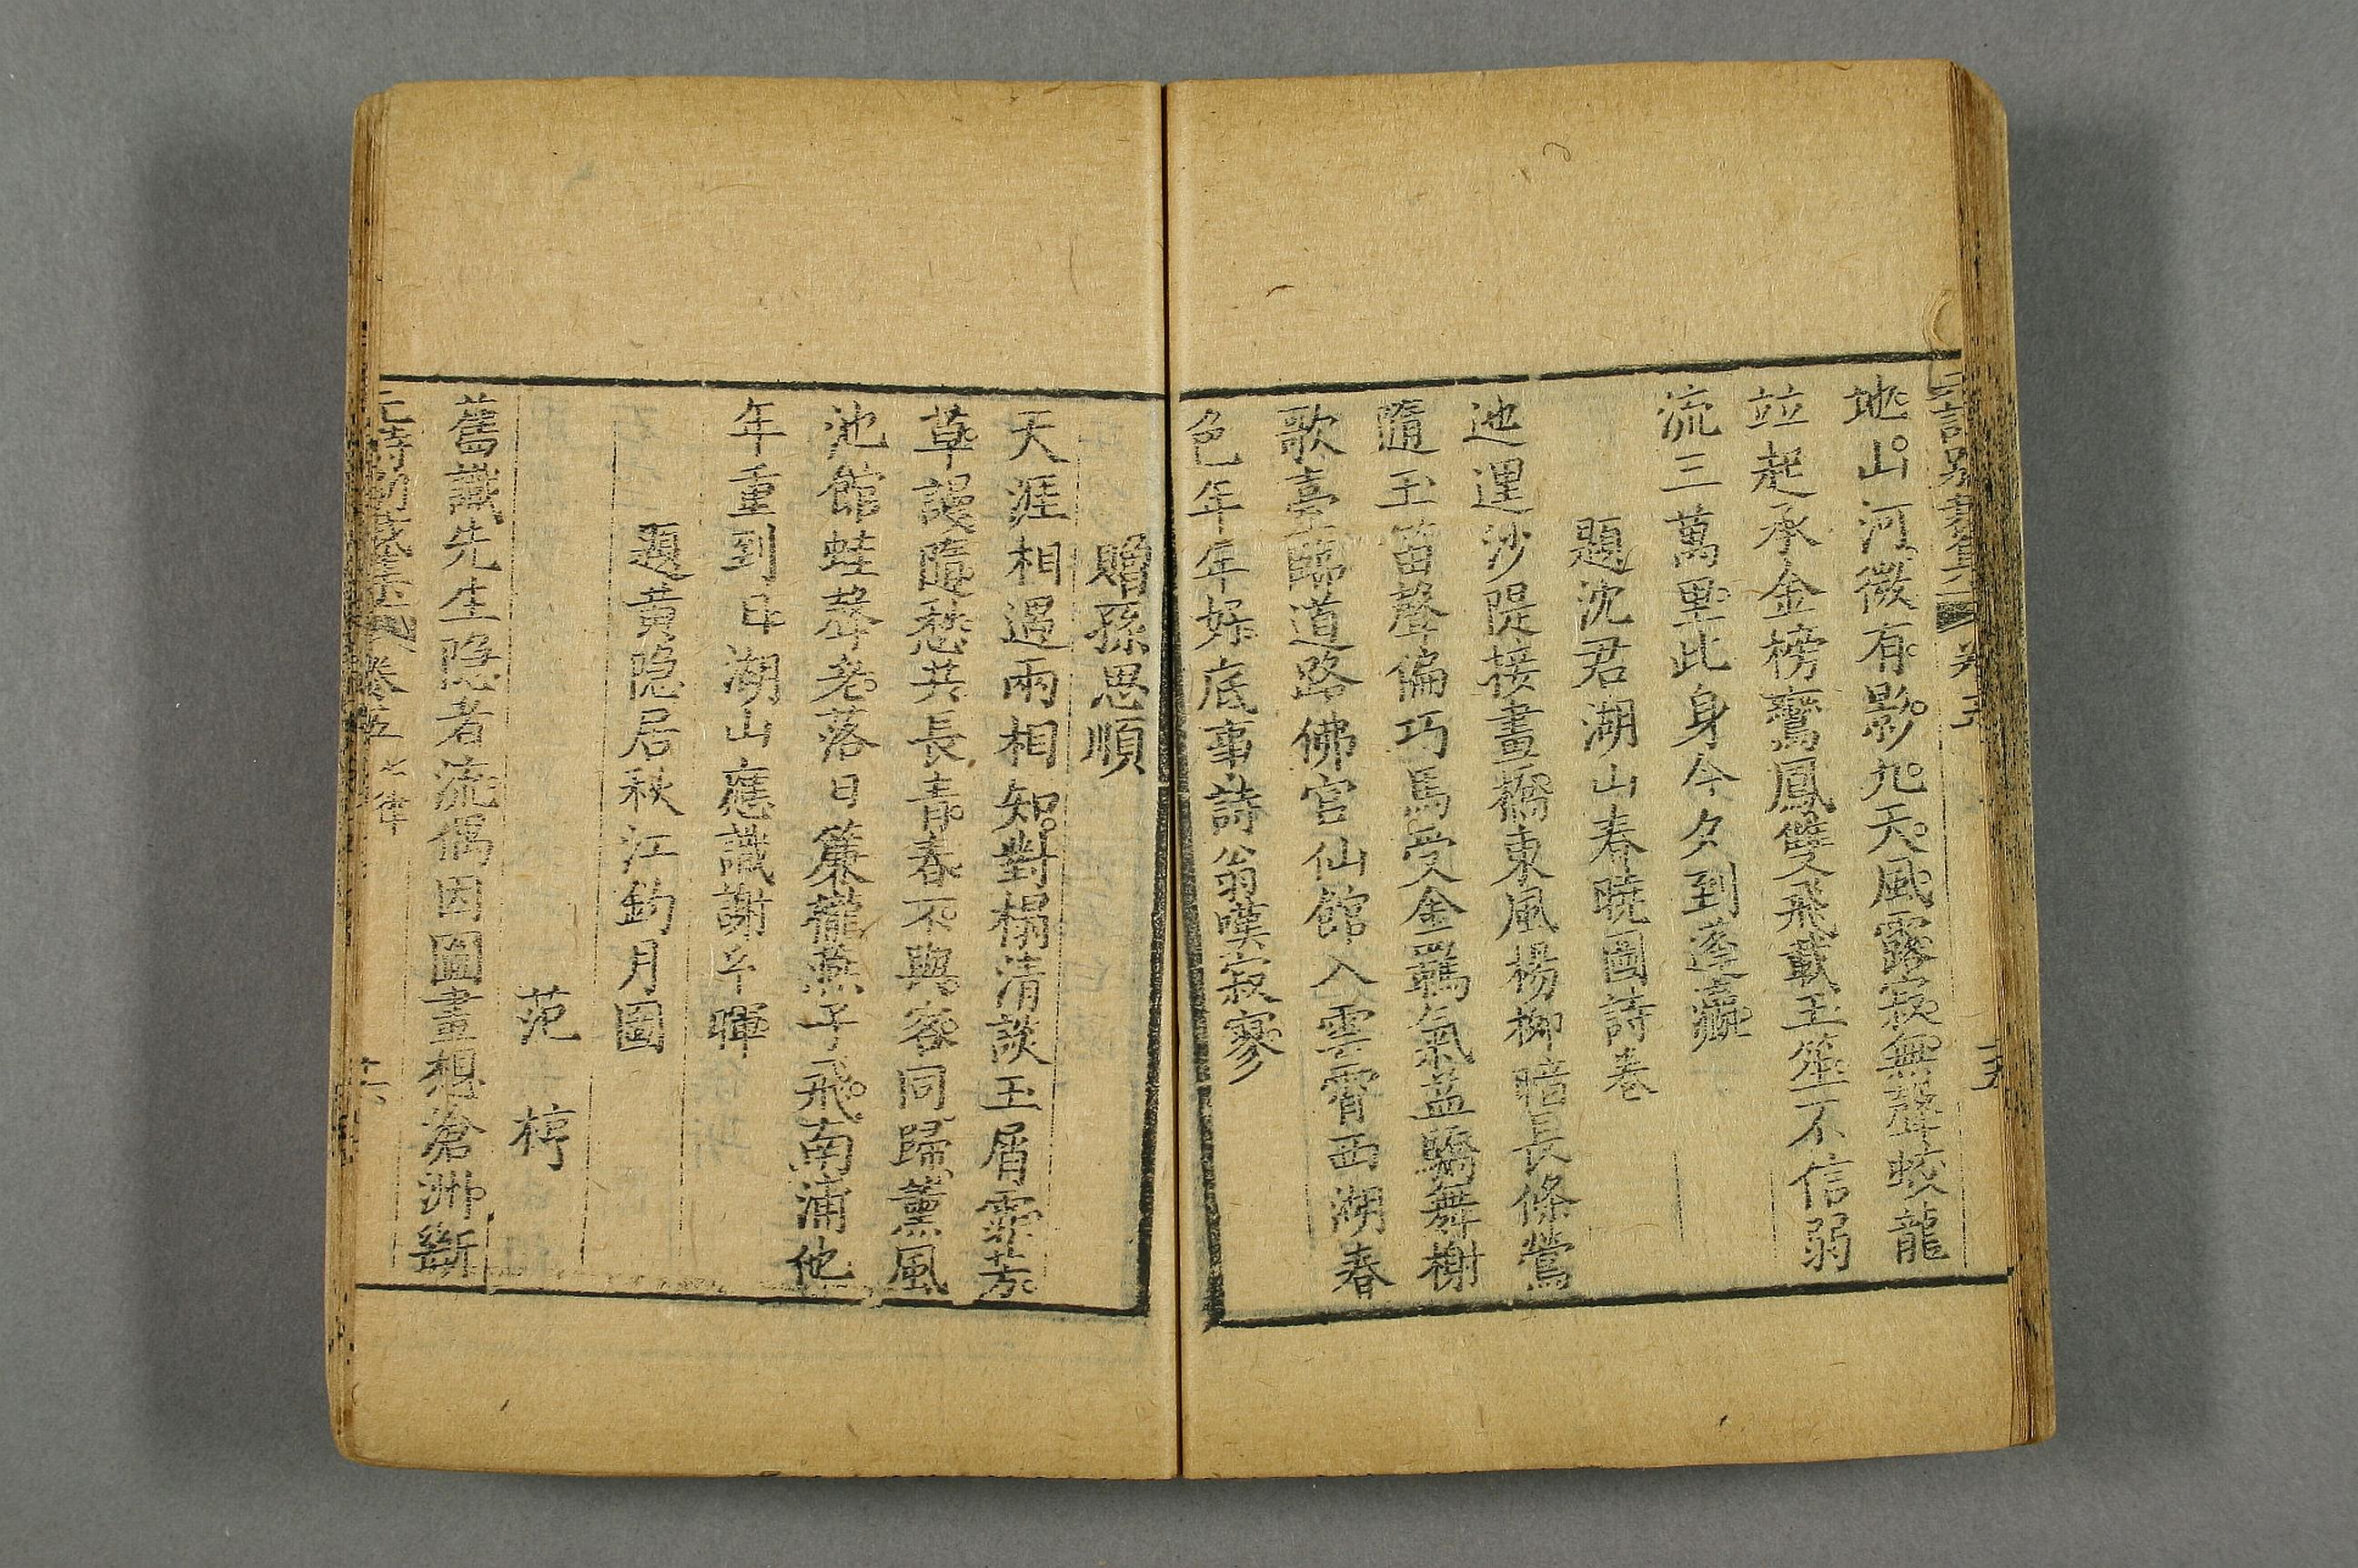 地山河微有影九天風露寂無聲蛟龍
竝起承金榜鸞鳳雙飛載玉笙不信弱
流三萬里此身今夕到蓬瀛
題沈君湖山春曉圖詩卷
迤邐沙隄接畫橋東風楊柳暗長條鶯
隨玉笛聲偏巧馬受金羈氣益驕舞榭
歌臺歸道路佛宫仙館入雲霄西湖春
色年年好底事詩翁嘆寂寥
贈孫思順
天涯相遇兩相知對榻清談玉屑霏芳
草謾隨愁共長青春不與客同歸薰風
池館蛙聲老落日簾櫳燕子飛南浦他
年重到日湖山應識謝玄暉
題黃隐居秋江釣月圖
范梈
舊識先生隐者流偶因圖畫想滄洲斷
卷五
七律
十六